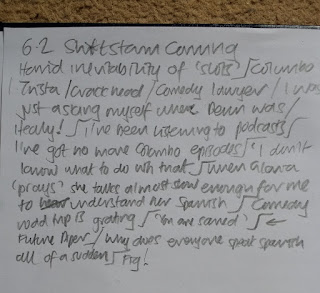 6.2 Shitstorm Coming
Horrid inevitability of 'sluts' / Columbo
/ Insta / Crackhead / Comedy lawyer / I was
just asking myself where Penn was /
Healy! / I've been listening to podcasts /
I've got no more Columbo episodes / 'I don't
know what to do wh that' / When Gloria
'prays' she talks almost slow enough for me
to understand her Spanish / Comedy
road trip is grating / 'You are saved' / ←
Future Piper / Why does everyone speak Spanish
all of a sudden / Fig!